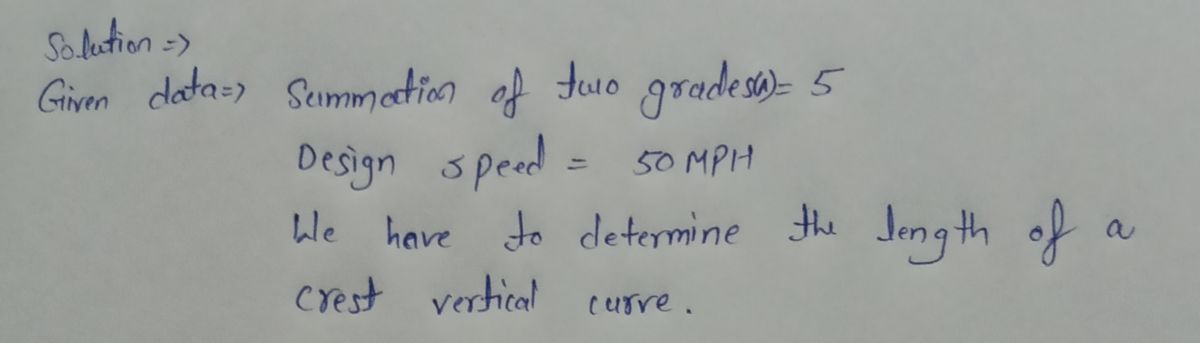 Solution =>
Given data=> Summation of two grades(a)= 5
Design speed = 50 MPH
We have to determine the length of a
crest vertical curve.